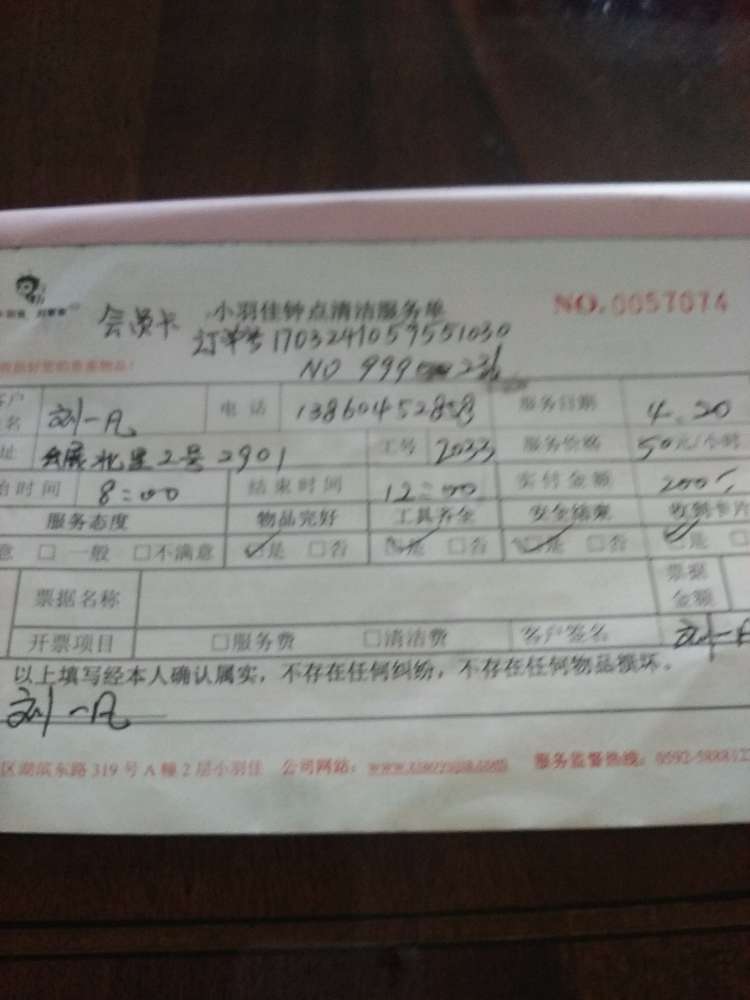 会员卡 小羽佳钟点清洁服务单 NO.0057074
订单号 1703241059551030
NO 999
客户 刘一凡 电话 13860452858 服务日期 4.20
名
址 2号2901 工号 2033 服务价格 50元/小时
时间 8:00 结束时间 12:00 实付金额 200
服务态度 物品完好 工具齐全 安全结束 收到卡片
意 □一般 □不满意 ☑是 □否 ☑是 □否 ☑是 □否 ☑是 □
票据名称 票据金额
开票项目 □服务费 □清洁费 客户签名 刘一凡
以上填写经本人确认属实，不存在任何纠纷，不存在任何物品损坏。
刘一凡
区湖滨东路319号A幢2层小羽佳 公司网站： 服务监督热线：0592-588812